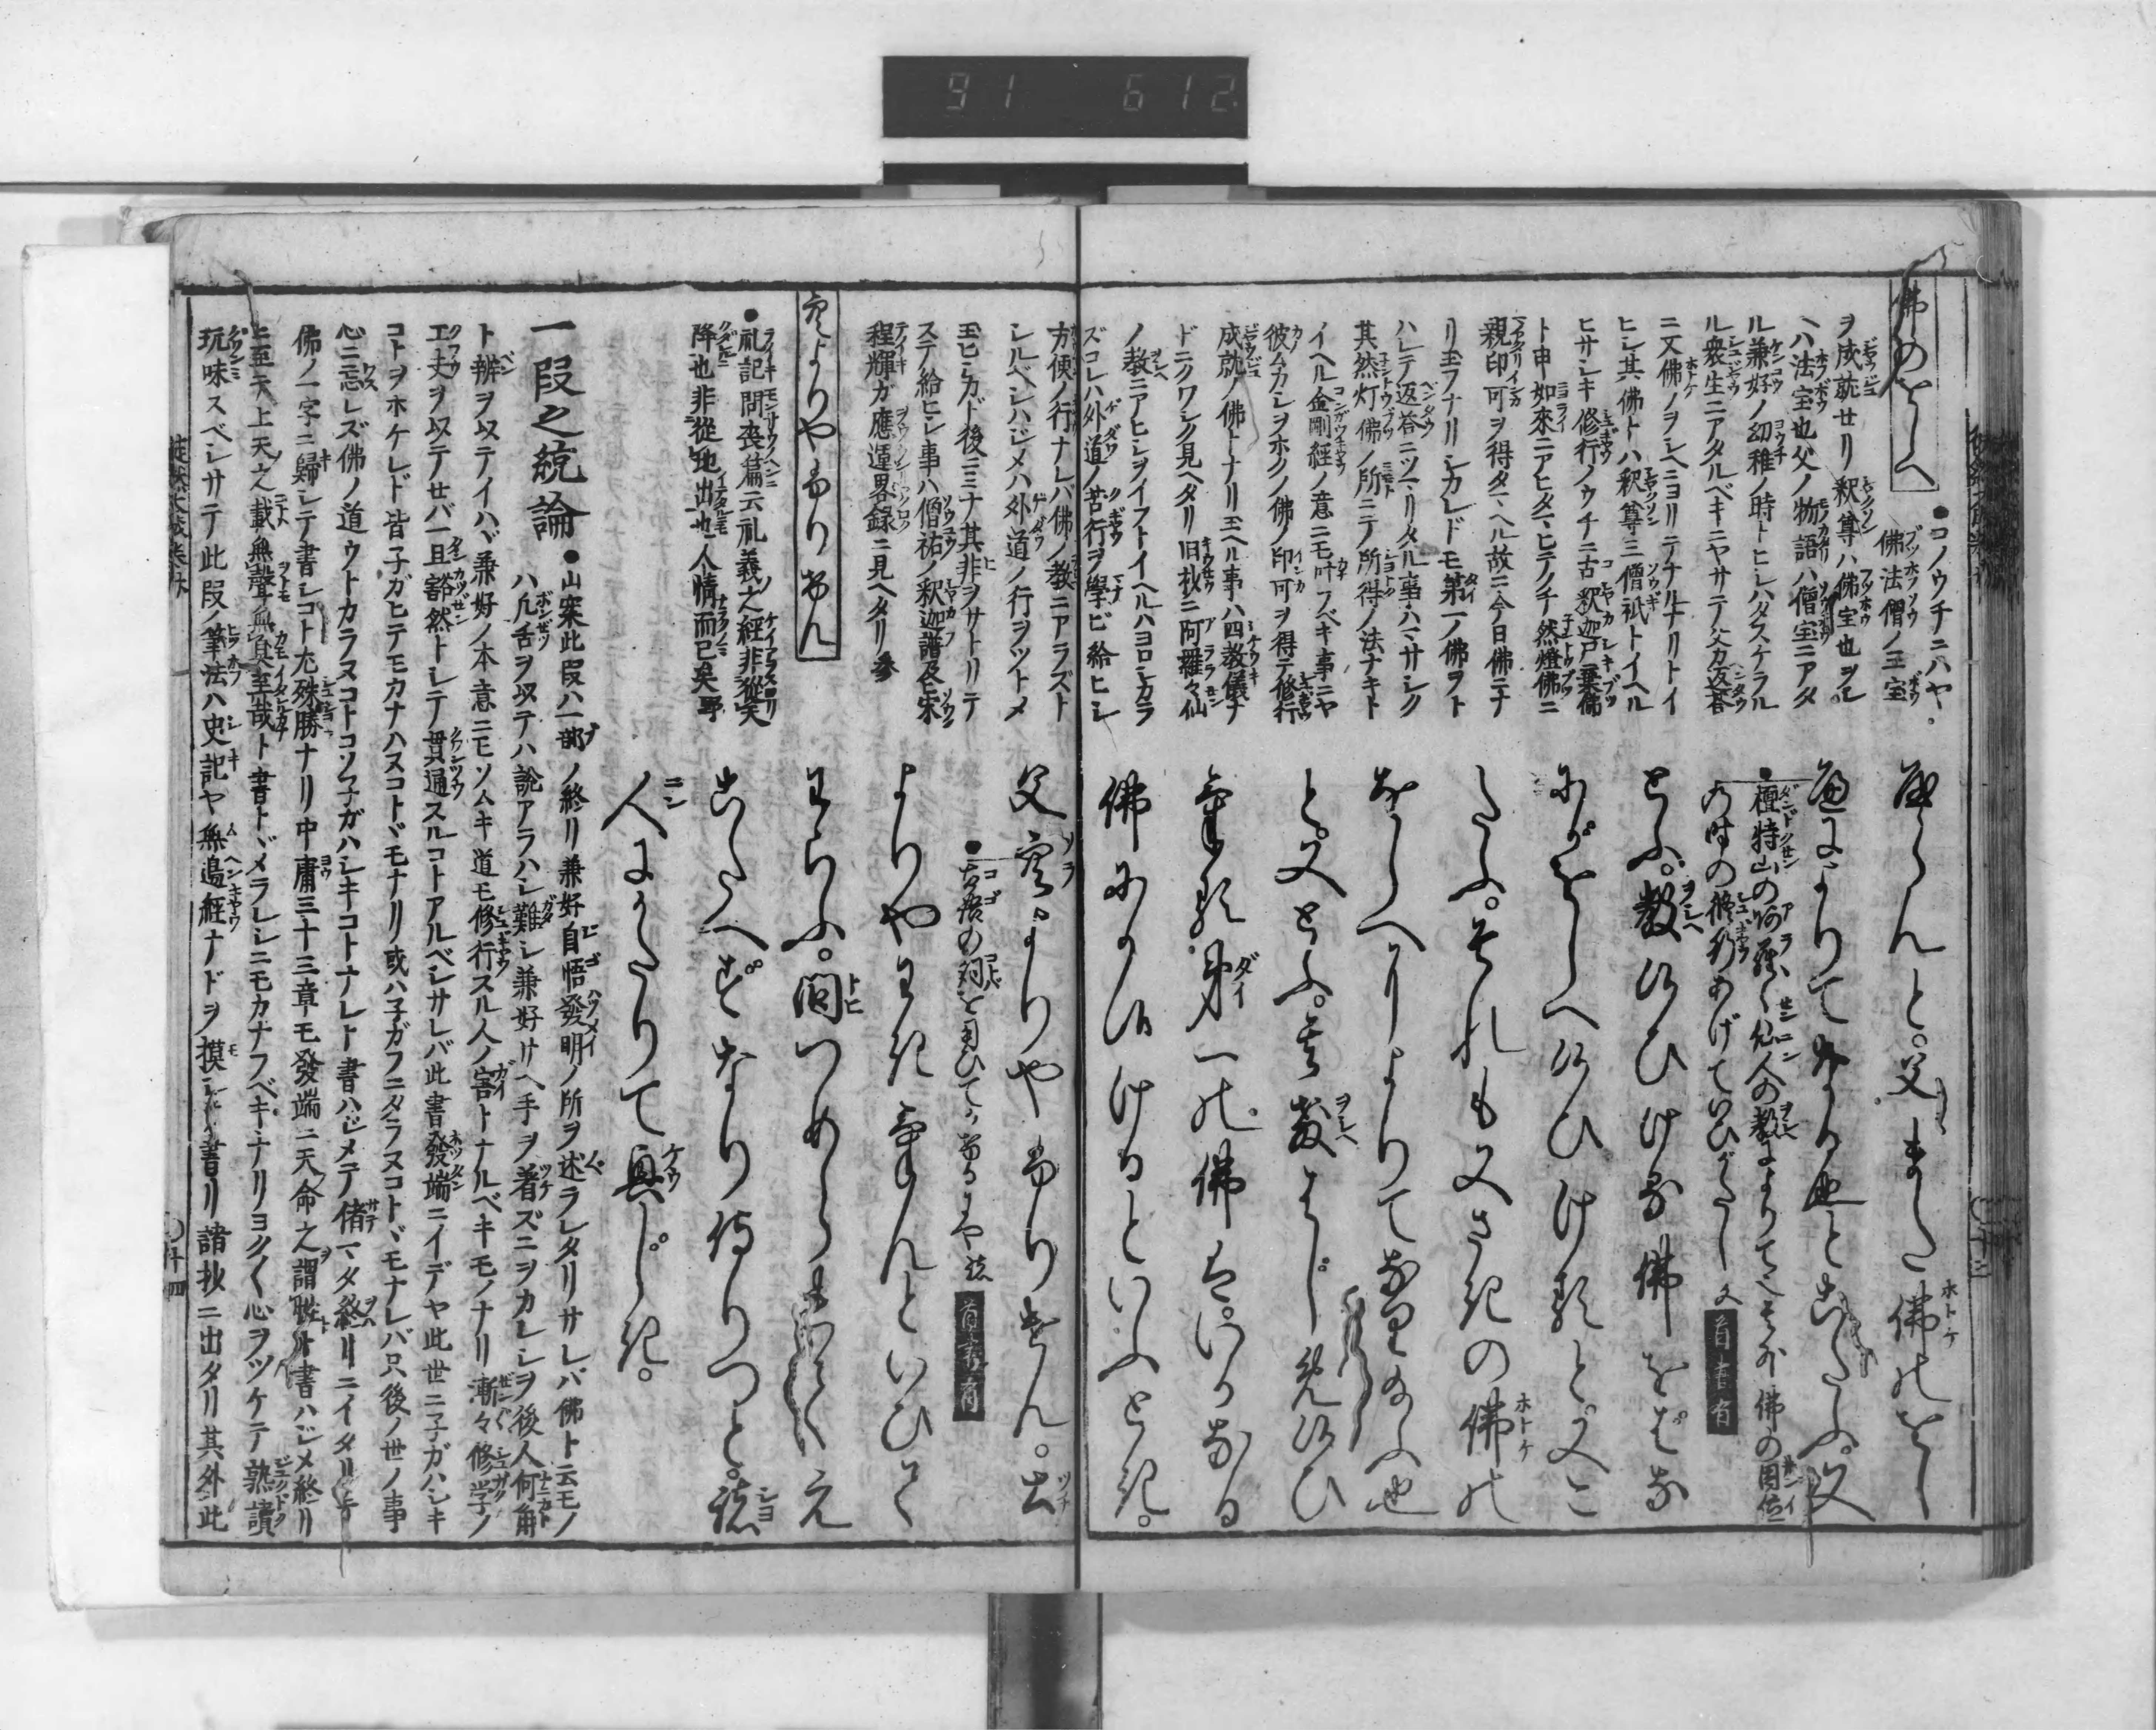 91 612
佛のをしへ
●コノウチニハヤ
佛法僧ノ三宝
ヲ成就せリ釈尊ハ佛宝也ヲシ
ヘハ法宝也父ノ物語ハ僧宝ニアタ
ル兼好ノ幼稚ノ時トヒシハタスケラル
ル衆生ニアタルベキニヤサテ父カ返答
ニ又佛ノヲシヘニヨリテナルナリトイ
ヒシ其佛トハ釈尊三僧祇トイヘル
ヒサシキ修行ノウチニ古釈迦尸棄佛
ト申如來ニアヒタマヒテノチ然燈佛ニ
親印可ヲ得タマヘル故ニ今日佛ニナ
リ玉フナリシカレドモ第一ノ佛ヲト
ハレテ返答ニツマリタル事ハマサシク
其然灯佛ノ所ニテ所得ノ法ナキト
イヘル金剛經ノ意ニモ叶フベキ事ニヤ
彼ムカシヲホクノ佛ノ印可ヲ得テ修行
成就ノ佛トナリ玉ヘル事ハ四教儀ナ
ドニクワシク見ヘタリ旧抄ニ阿羅々仙
ノ教ニアヒシヲイフトイヘルハヨロシカラ
ズコレハ外道ノ苦行ヲ學ビ給ヒシ
候らんと。父また佛のをし
へによりてなる也とこたふ。又
●檀特山の阿羅々仙人の教によりて
の時の修行あげていひがたし 文 首書有
とふ。教候ひける佛をばな
にがをしへ候ひけると。又こ
たふ。それも又さきの佛の
をしへによりてなり給ふ也
と。又とふ。其教はじめ候ひ
ける。第一の佛は。いかなる
佛にか候けるといふとき。
方便ノ行ナレバ佛ノ教ニアラズト
シルベシハジメハ外道ノ行ヲツトメ
玉ヒシカド後ニミナ其非ヲサトリテ
ステ給ヒシ事ハ僧祐ノ釈迦譜及ヒ宋
程輝カ應運畧録ニ見ヘタリ参
空よりやふりけん
●礼記問喪篇云礼義之經非從天
降也非從地出也人情而已矣 野
父空よりやふりけん。土
よりやわきけんといひて
わらふ。問つめられて え
こたへずなり侍りつと。諸
人にかたりて興じき。
一段之統論
●山案此段ハ一部ノ終リ兼好自悟發明ノ所ヲ述ラレタリサレバ佛ト云モノ
ハ凡舌ヲ以テハ説アラハシ難シ兼好サヘ手ヲ着ズニヲカレシヲ後人何角
ト辨ヲ以テイハバ兼好ノ本意ニモソムキ道モ修行スル人ノ害トナルベキモノナリ漸々修学ノ
工夫ヲ以テせバ一旦豁然トシテ貫通スルコトアルベシサレバ此書發端ニイデヤ此世ニ子ガハシキ
コトヲホケレド皆子ガヒテモカナハヌコトドモナリ或ハ子ガフニタラヌコトドモナレバ只後ノ世ノ事
心ニ忘レズ佛ノ道ウトカラヌコトコソ子ガハシキコトナレト書ハジメテ偖マタ終リニイタリテ
佛ノ一字ニ歸シテ書シコト尤殊勝ナリ中庸三十三章モ發端ニ天命之謂性ト書ハジメ終リ
ニ至天上天之載無聲無臭至哉ト書トドメラレシニモカナフベキナリヨク〱心ヲツケテ熟讀
玩味スベシサテ此段ノ筆法ハ史記ヤ無邉經ナドヲ摸シテ書リ諸抄ニ出タリ其外此